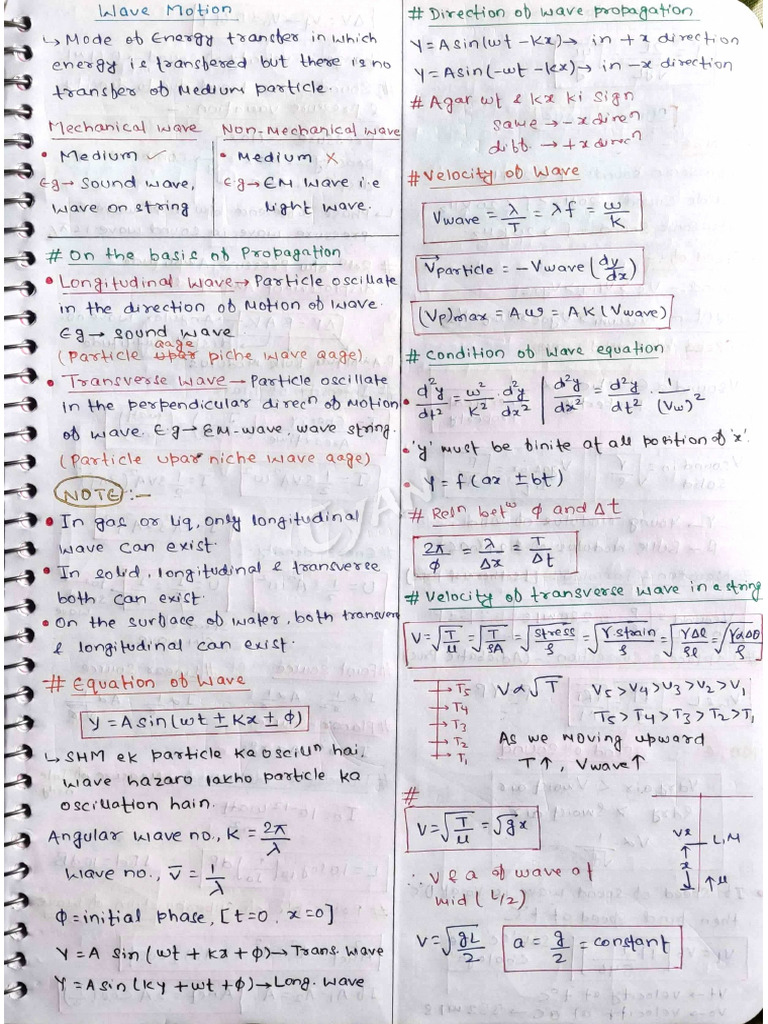 Wave Motion
↳ Mode of Energy transfer in which
energy is transfered but there is no
transfer of Medium particle.
Mechanical wave
• Medium ✓
Eg→ Sound wave,
wave on string
Non-Mechanical wave
• Medium ✗
e.g→ EM. wave i.e
light wave.
# On the basis of Propagation
• Longitudinal wave→ Particle oscillate
in the direction of Motion of wave.
Eg→ sound wave
aage
(Particle upar piche wave aage).
• Transverse wave → Particle oscillate
in the perpendicular direcⁿ of Motion
of wave. Eg→ EM-wave, wave string.
(Particle upar niche wave aage)
NOTE :-
• In gas or Liq, only longitudinal
wave can exist.
• In solid, longitudinal & transverse
both can exist.
• On the surface of water, both transvers
& longitudinal can exist.
# Equation of Wave
y = A sin (wt ± Kx ± ϕ)
↳ SHM ek particle ka oscillⁿ hai,
wave hazaro lakho particle ka
oscillation hain.
Angular wave no., K = 2π/λ
wave no., v̅ = 1/λ
ϕ = initial phase, [t=0, x=0]
Y = A sin (wt + kx + ϕ) → Trans. wave
Y = A sin (ky + wt + ϕ) → Long. wave
# Direction of wave propagation
Y = A sin (wt - Kx) → in +x direction
Y = A sin (-wt - kx) → in -x direction
# Agar wt & kx ki sign
same → -x direⁿ
diff. → +x direcⁿ
# Velocity of Wave
Vwave = λ/T = λf = ω/K
V⃗particle = -Vwave (dy/dx)
(Vp)max = Aω = AK (Vwave)
# Condition of wave equation
• d²y/dt² = ω²/K² · d²y/dx² | d²y/dx² = d²y/dt² · 1/(Vw)²
• 'y' must be finite at all position of 'x'.
• Y = f (ax ± bt)
# Relⁿ betʷ ϕ and Δt
2π/ϕ = λ/Δx = T/Δt
# Velocity of transverse wave in a string
V = √T/μ = √T/ρA = √stress/ρ = √Y.strain/ρ = √YΔl/ρl = √YαΔθ/ρ
T5
T4
T3
T2
T1
V ∝ √T
V5 > V4 > V3 > V2 > V1
T5 > T4 > T3 > T2 > T1
As we moving upward
T↑, Vwave↑
#
V = √T/μ = √gx
L,M
x
↑μ
∴ V & a of wave at
mid (L/2)
V = √gL/2
a = g/2 = constant